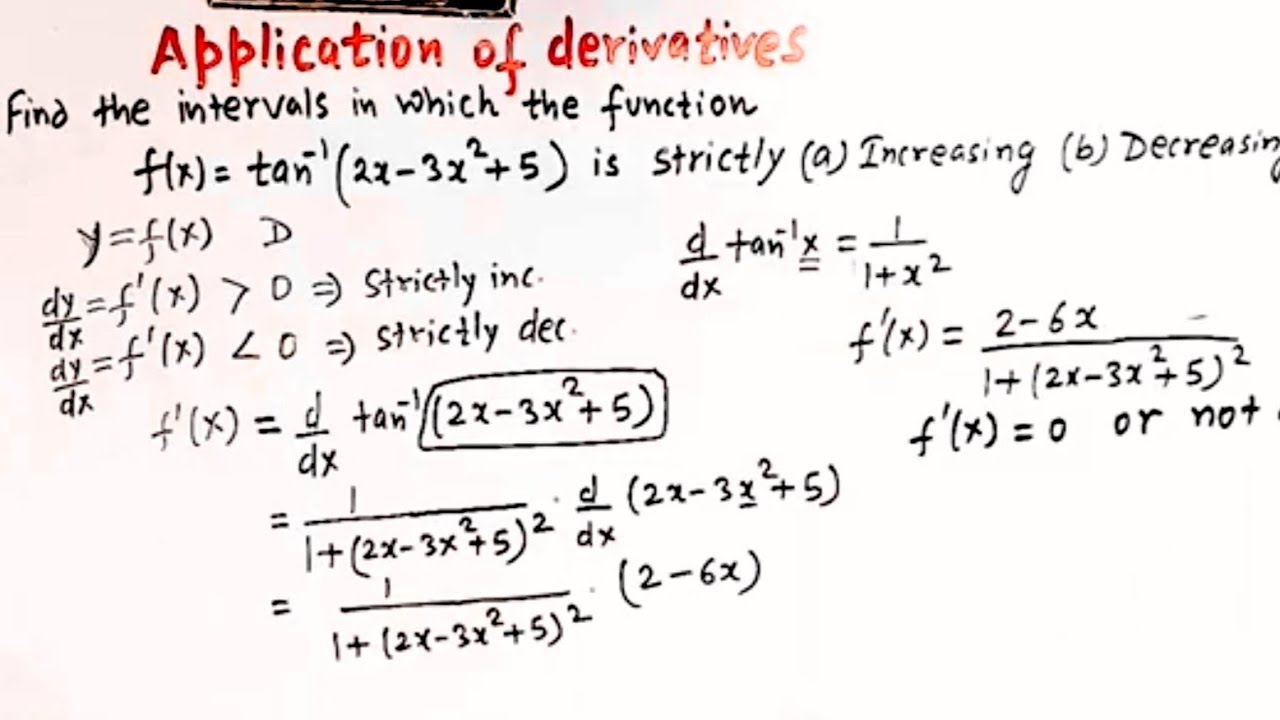 Application of derivatives
Find the intervals in which the function
f(x) = tan⁻¹(2x-3x²+5) is strictly (a) Increasing (b) Decreasin
y = f(x) D
dy/dx = f'(x) > 0 ⇒ Strictly inc.
dy/dx = f'(x) < 0 ⇒ strictly dec.
f'(x) = d/dx tan⁻¹(2x-3x²+5)
= 1/(1+(2x-3x²+5)²) · d/dx (2x-3x²+5)
= 1/(1+(2x-3x²+5)²) · (2-6x)
d/dx tan⁻¹x = 1/(1+x²)
f'(x) = (2-6x)/(1+(2x-3x²+5)²)
f'(x) = 0 or not